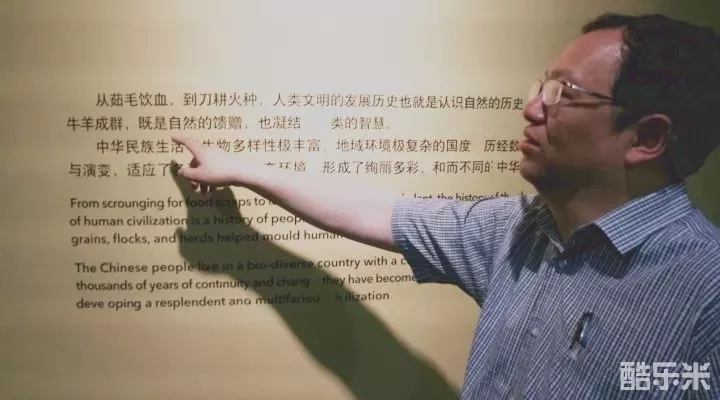 从茹毛饮血，到刀耕火种，人类文明的发展历史也就是认识自然的历史
牛羊成群，既是自然的馈赠，也凝结 类的智慧。
中华民族生活 生物多样性极丰富、地域环境极复杂的国度 历经数
与演变，适应了 环境 形成了绚丽多彩、和而不同的中华
From scrounging for food scraps to the history of
of human civilization is a history of people
grains, flocks, and herds helped mould human
The Chinese people live in a bio-diverse country with a
thousands of years of continuity and chang they have become
deve oping a resplendent and multifariou ilization
酷乐米